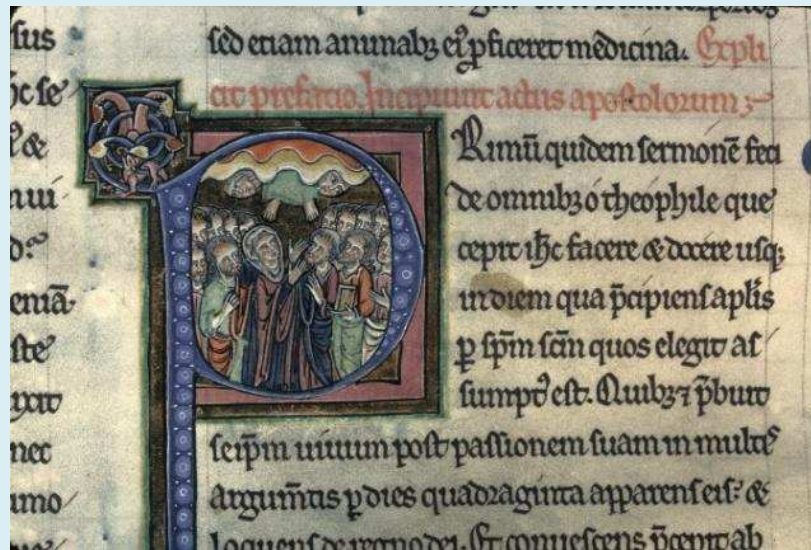 sus
hc se
&
nui
d:
eniā
ste
uxit
nec
imo
sed etiam animabꝫ eiꝰ ꝓficeret medicina. Expli
cit prefatio. Incipiunt actus apostolorum;
PRimū quidem sermonē feci
de omnibꝫ ó theophile que
cepit ihc facere & docere usqꝫ
in diem qua p̄cipiens aplis
ꝑ spm scm̄ quos elegit as
sumptꝰ est. Quibꝫ ⁊ p̄buit
seipm uiuum post passionem suam in multis
argum̄tis ꝑ dies quadraginta apparens eis: &
loquens de regno dei. Et conuescens p̄cepit ab